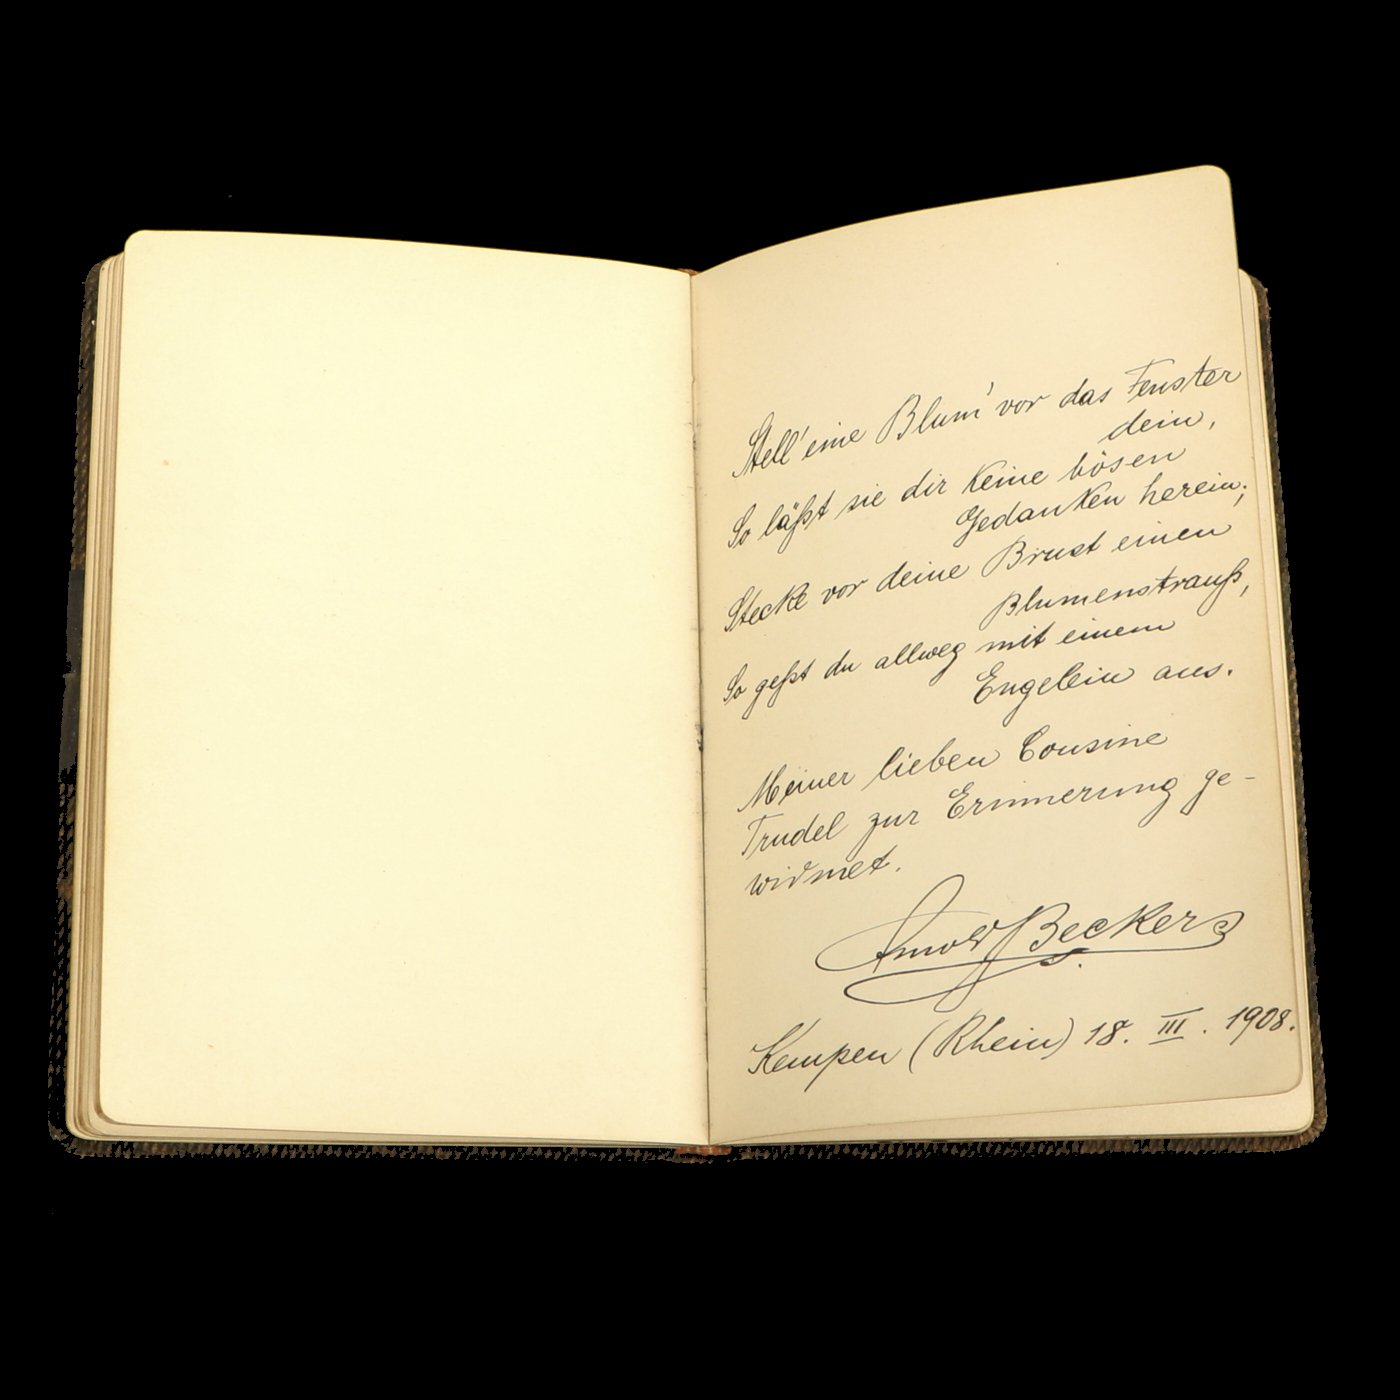 Stell' eine Blum' vor das Fenster
dein,
So läßt sie dir keine bösen
Gedanken herein;
Stecke vor deine Brust einen
Blumenstrauß,
So gehst du allweg mit einem
Engelein aus.
Meiner lieben Cousine
Trudel zur Erinnerung ge-
widmet.
Arnold Beckers.
Kempen (Rhein) 18. III. 1908.